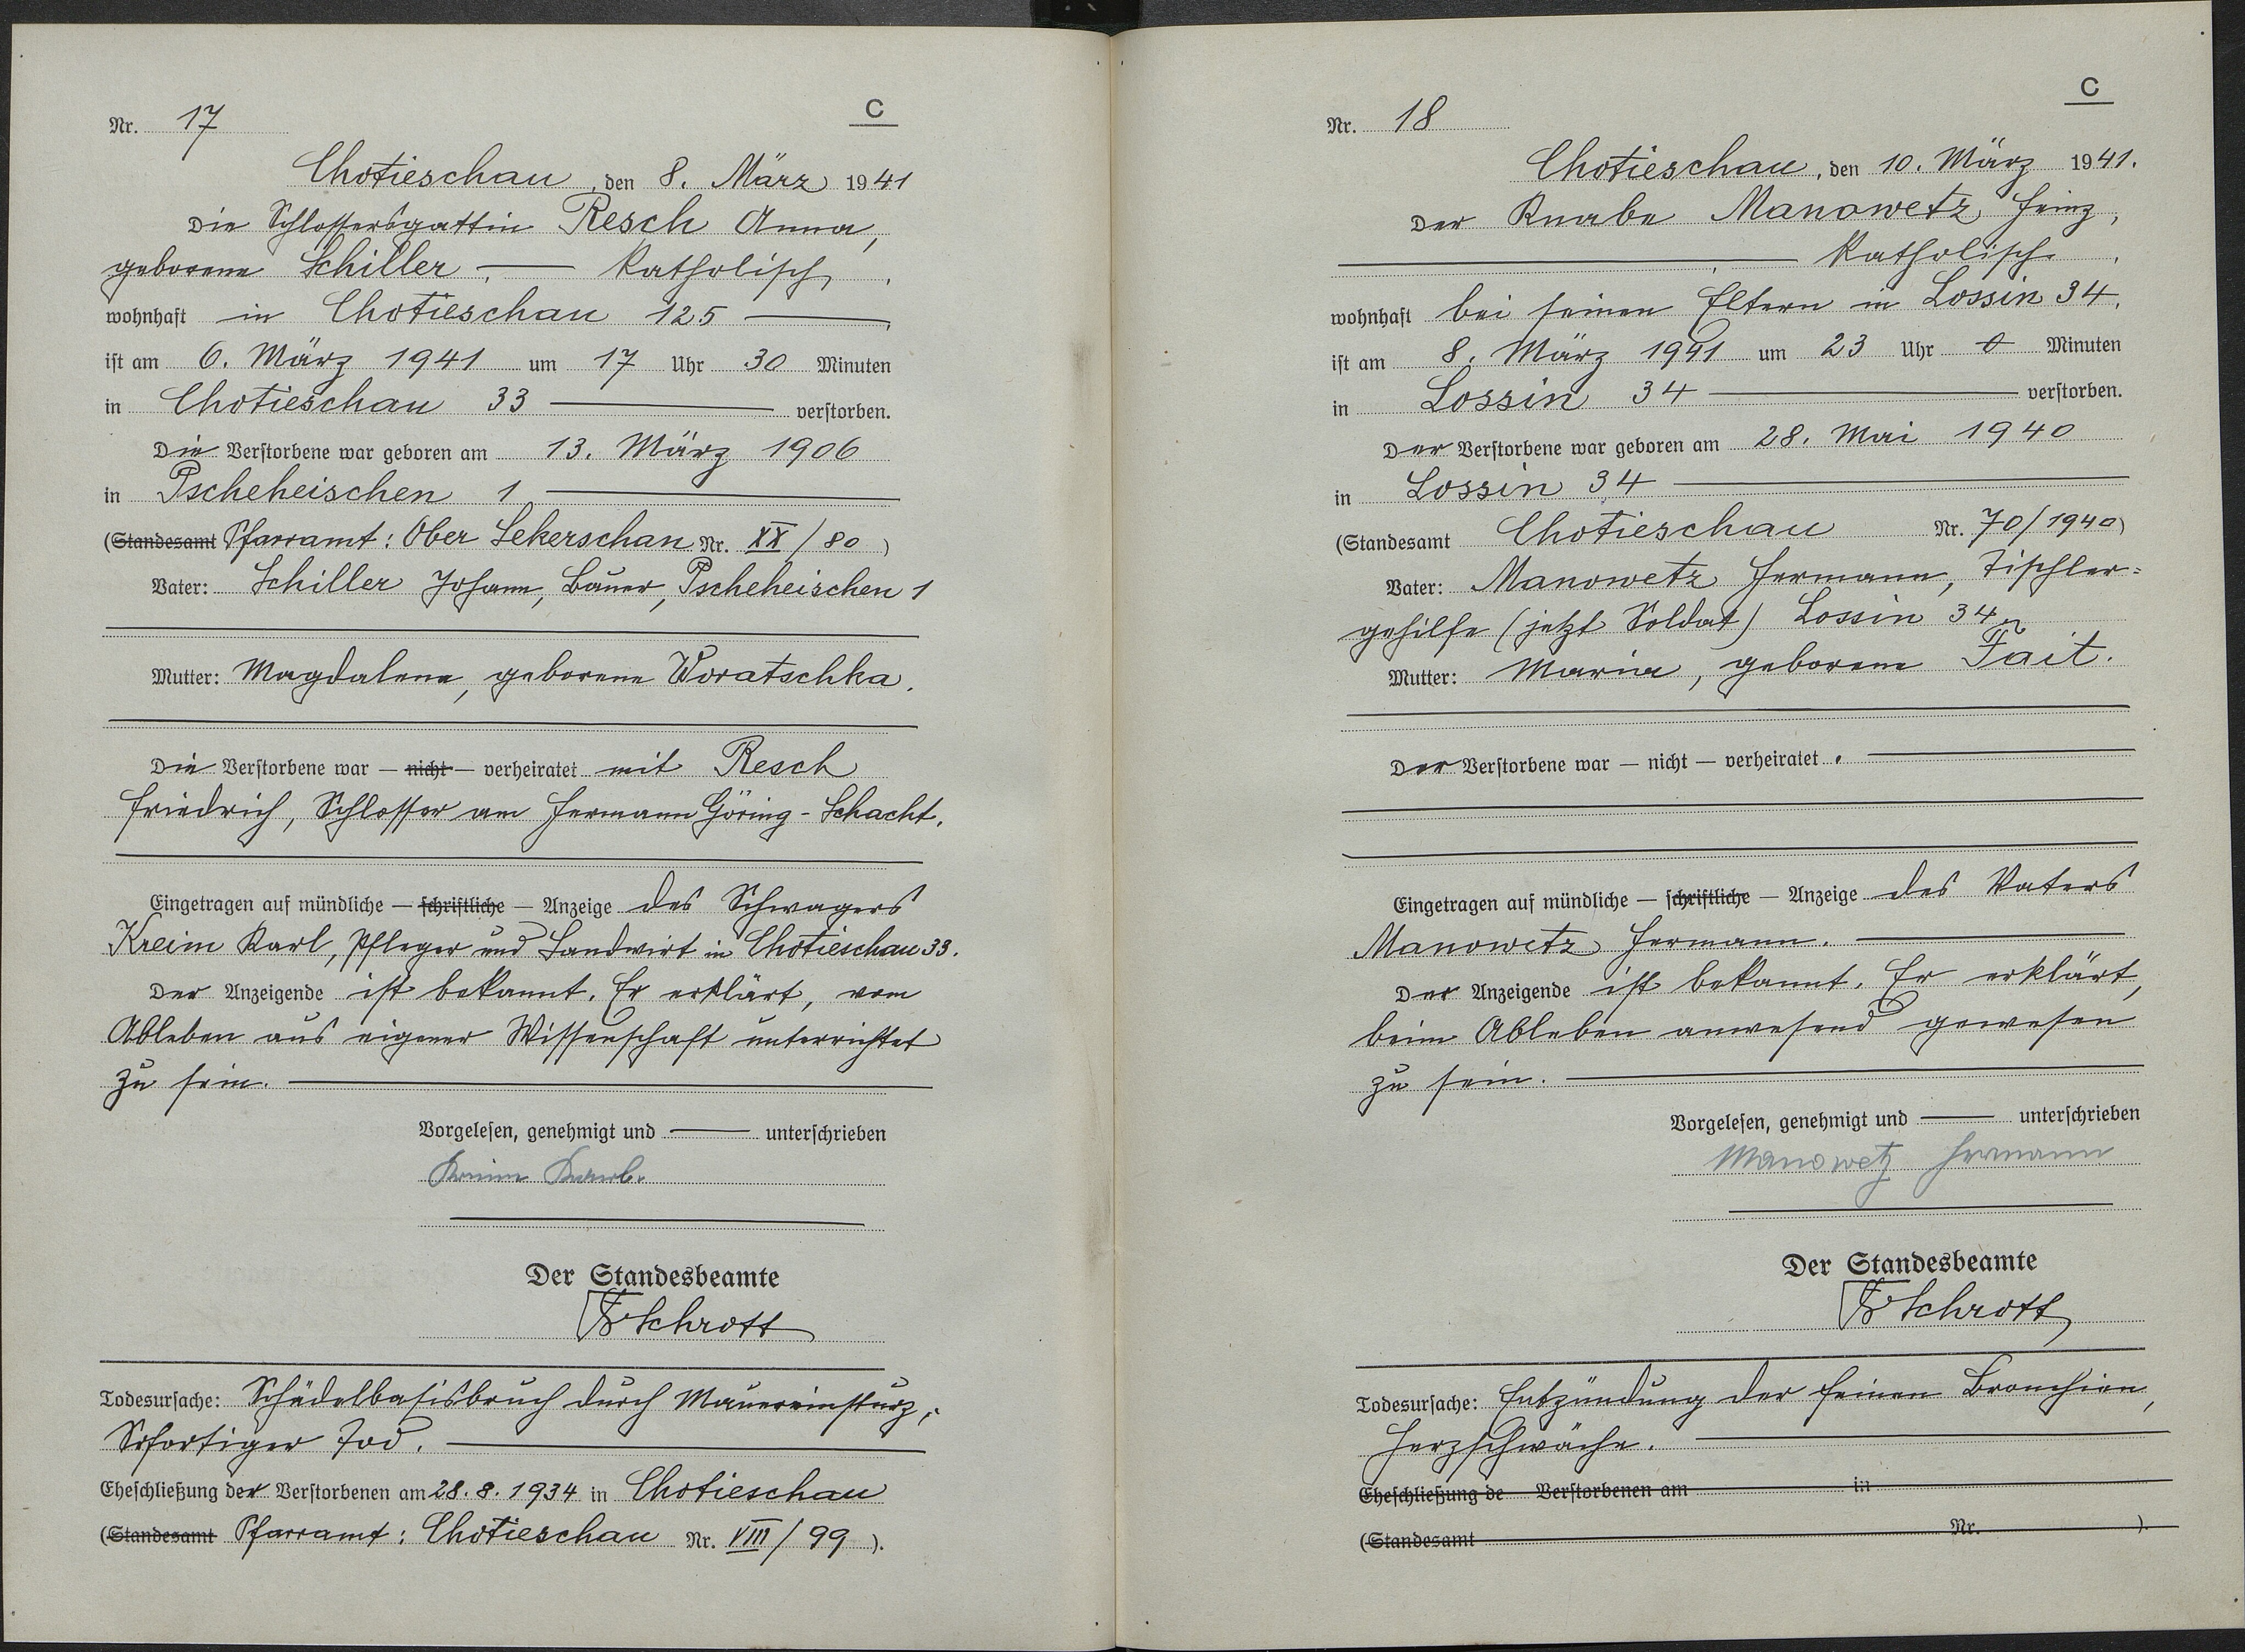 Nr. 17
C
Chotieschau, den 8. März 1941
Die Schlossersgattin Resch Anna,
geborene Schiller, — katholisch,
wohnhaft in Chotieschau 125 —,
ist am 6. März 1941 um 17 Uhr 30 Minuten
in Chotieschau 33 — verstorben.
Die Verstorbene war geboren am 13. März 1906
in Pscheheischen 1 —
(Standesamt Pfarramt: Ober Sekerschan Nr. XX/80)
Vater: Schiller Johann, Bauer, Pscheheischen 1
Mutter: Magdalena, geborene Woratschka.
Die Verstorbene war — nicht — verheiratet mit Resch
Friedrich, Schlosser am Hermann Göring-Schacht.
Eingetragen auf mündliche — schriftliche — Anzeige des Schwagers
Kreim Karl, Pfleger und Landwirt in Chotieschau 33.
Der Anzeigende ist bekannt. Er erklärt, vom
Ableben aus eigener Wissenschaft unterrichtet
zu sein. —
Vorgelesen, genehmigt und — unterschrieben
Kreim Karl.
Der Standesbeamte
Schrott
Todesursache: Schädelbasisbruch durch Mauereinsturz,
Sofortiger Tod. —
Eheschließung der Verstorbenen am 28.8.1934 in Chotieschau
(Standesamt Pfarramt: Chotieschau Nr. VIII/99).
Nr. 18
C
Chotieschau, den 10. März 1941.
Der Knabe Manowetz Heinz,
— katholisch,
wohnhaft bei seinen Eltern in Lossin 34,
ist am 8. März 1941 um 23 Uhr 0 Minuten
in Lossin 34 — verstorben.
Der Verstorbene war geboren am 28. Mai 1940
in Lossin 34 —
(Standesamt Chotieschau Nr. 70/1940)
Vater: Manowetz Hermann, Tischler=
gehilfe (jetzt Soldat) Lossin 34
Mutter: Maria, geborene Fait.
Der Verstorbene war — nicht — verheiratet. —
Eingetragen auf mündliche — schriftliche — Anzeige des Vaters
Manowetz Hermann. —
Der Anzeigende ist bekannt. Er erklärt,
beim Ableben anwesend gewesen
zu sein. —
Vorgelesen, genehmigt und — unterschrieben
Manowetz Hermann
Der Standesbeamte
Schrott
Todesursache: Entzündung der feinen Bronchien,
Herzschwäche. —
Eheschließung de Verstorbenen am in
(Standesamt Nr. ).